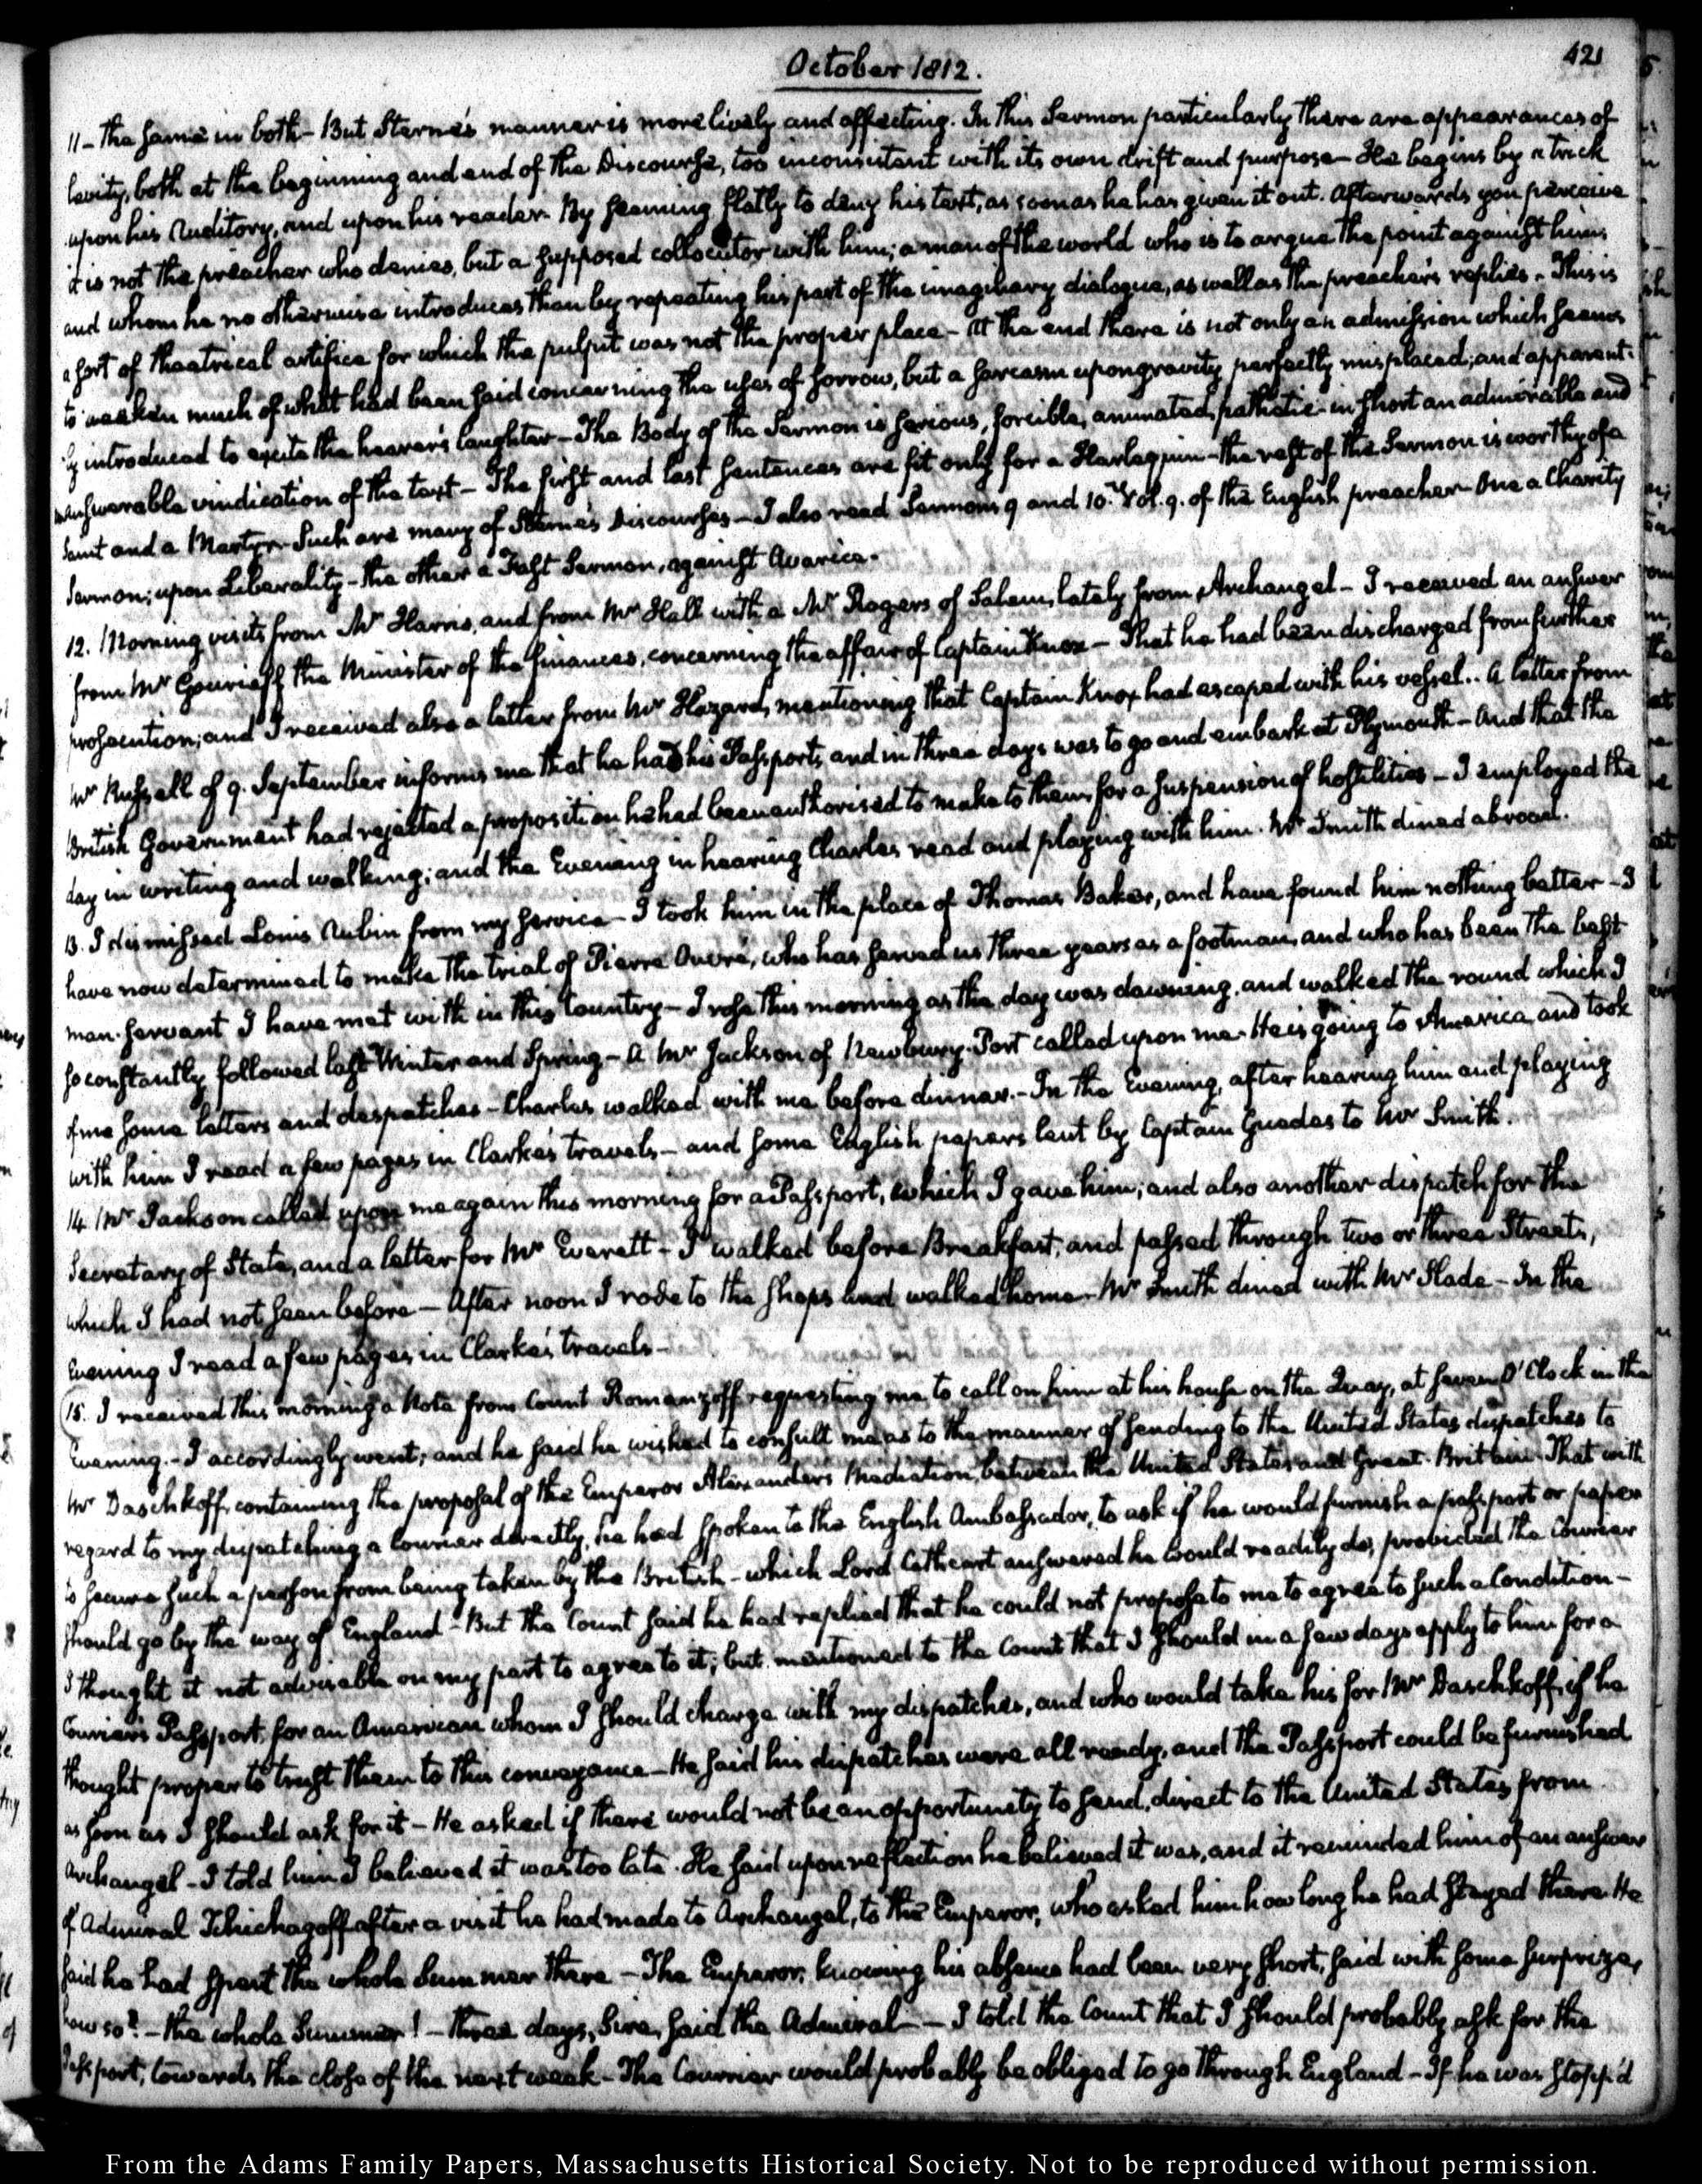 October 1812.
421
11 - the same in both - But Sterne's manner is more lively and affecting. In this Sermon particularly there are appearances of
levity, both at the beginning and end of the Discourse, too inconsistent with its own drift and purpose - He begins by a trick
upon his Auditory, and upon his reader. By seeming flatly to deny his text, as soon as he has given it out. Afterwards you perceive
it is not the preacher who denies, but a supposed collocutor with him; a man of the world who is to argue the point against him,
and whom he no otherwise introduces than by repeating his part of the imaginary dialogue, as well as the preacher's replies. This is
a sort of theatrical artifice for which the pulpit was not the proper place - At the end there is not only an admission which seems
to weaken much of what had been said concerning the uses of sorrow, but a sarcasm upon gravity perfectly misplaced; and apparent-
ly introduced to excite the hearer's laughter - The Body of the Sermon is serious, forcible, animated, pathetic - in short an admirable and
unanswerable vindication of the text - The first and last sentences are fit only for a Harlequin - the rest of the Sermon is worthy of a
Saint and a Martyr - Such are many of Sterne's Discourses - I also read Sermons 9 and 10. Vol. 9. of the English preacher - One a Charity
Sermon; upon Liberality - the other a Fast Sermon, against Avarice.
12. Morning visits from Mr Harris, and from Mr Hall with a Mr Rogers of Salem, lately from Archangel - I received an answer
from Mr Gourieff the Minister of the finances, concerning the affair of Captain Knox - That he had been discharged from further
prosecution; and I received also a letter from Mr Hazard, mentioning that Captain Knox had escaped with his vessel.. A letter from
Mr Russell of 9. September informs me that he had his Passports, and in three days was to go and embark at Plymouth - And that the
British Government had rejected a proposition he had been authorised to make to them, for a suspension of hostilities - I employed the
day in writing and walking; and the Evening in hearing Charles read and playing with him. Mr Smith dined abroad.
13. I dismissed Louis Aubin from my service - I took him in the place of Thomas Baker, and have found him nothing better - I
have now determined to make the trial of Pierre Ouvré, who has served us three years as a footman, and who has been the best
man-servant I have met with in this Country - I rose this morning as the day was dawning, and walked the round which I
so constantly followed last Winter and Spring - A Mr Jackson of Newbury-Port called upon me. He is going to America, and took
of me some letters and despatches - Charles walked with me before dinner. - In the Evening, after hearing him and playing
with him I read a few pages in Clarke's travels - and some English papers lent by Captain Guedes to Mr Smith.
14. Mr Jackson called upon me again this morning for a Passport, which I gave him; and also another dispatch for the
Secretary of State, and a letter for Mr Everett - I walked before Breakfast, and passed through two or three Streets,
which I had not seen before - After noon I rode to the shops and walked home - Mr Smith dined with Mr Slade - In the
Evening I read a few pages in Clarke's travels -
15. I received this morning a Note from Count Romanzoff requesting me to call on him at his house on the Quay, at seven O'Clock in the
Evening. - I accordingly went; and he said he wished to consult me as to the manner of sending to the United States dispatches to
Mr Daschkoff, containing the proposal of the Emperor Alexander's Mediation, between the United States and Great-Britain. That with
regard to my dispatching a Courier directly, he had spoken to the English Ambassador, to ask if he would furnish a passport or paper
to secure such a person from being taken by the British - which Lord Cathcart answered he would readily do, provided the Courier
should go by the way of England - But the Count said he had replied that he could not propose to me to agree to such a Condition -
I thought it not adviseable on my part to agree to it; but mentioned to the Count that I should in a few days apply to him for a
Courier's Passport, for an American whom I should charge with my dispatches, and who would take his for Mr Daschkoff, if he
thought proper to trust them to this conveyance - He said his dispatches were all ready, and the Passport could be furnished
as soon as I should ask for it - He asked if there would not be an opportunity to send, direct to the United States from
Archangel - I told him I believed it was too late. He said upon reflection he believed it was, and it reminded him of an answer
of Admiral Tchichagoff after a visit he had made to Archangel, to the Emperor, who asked him how long he had stayed there. He
said he had spent the whole Summer there - The Emperor, knowing his absence had been very short, said with some surprize,
how so? - the whole Summer! - three days, Sire, said the Admiral - I told the Count that I should probably ask for the
Passport, towards the close of the next week - The Courier would probably be obliged to go through England - If he was stopp'd
From the Adams Family Papers, Massachusetts Historical Society. Not to be reproduced without permission.